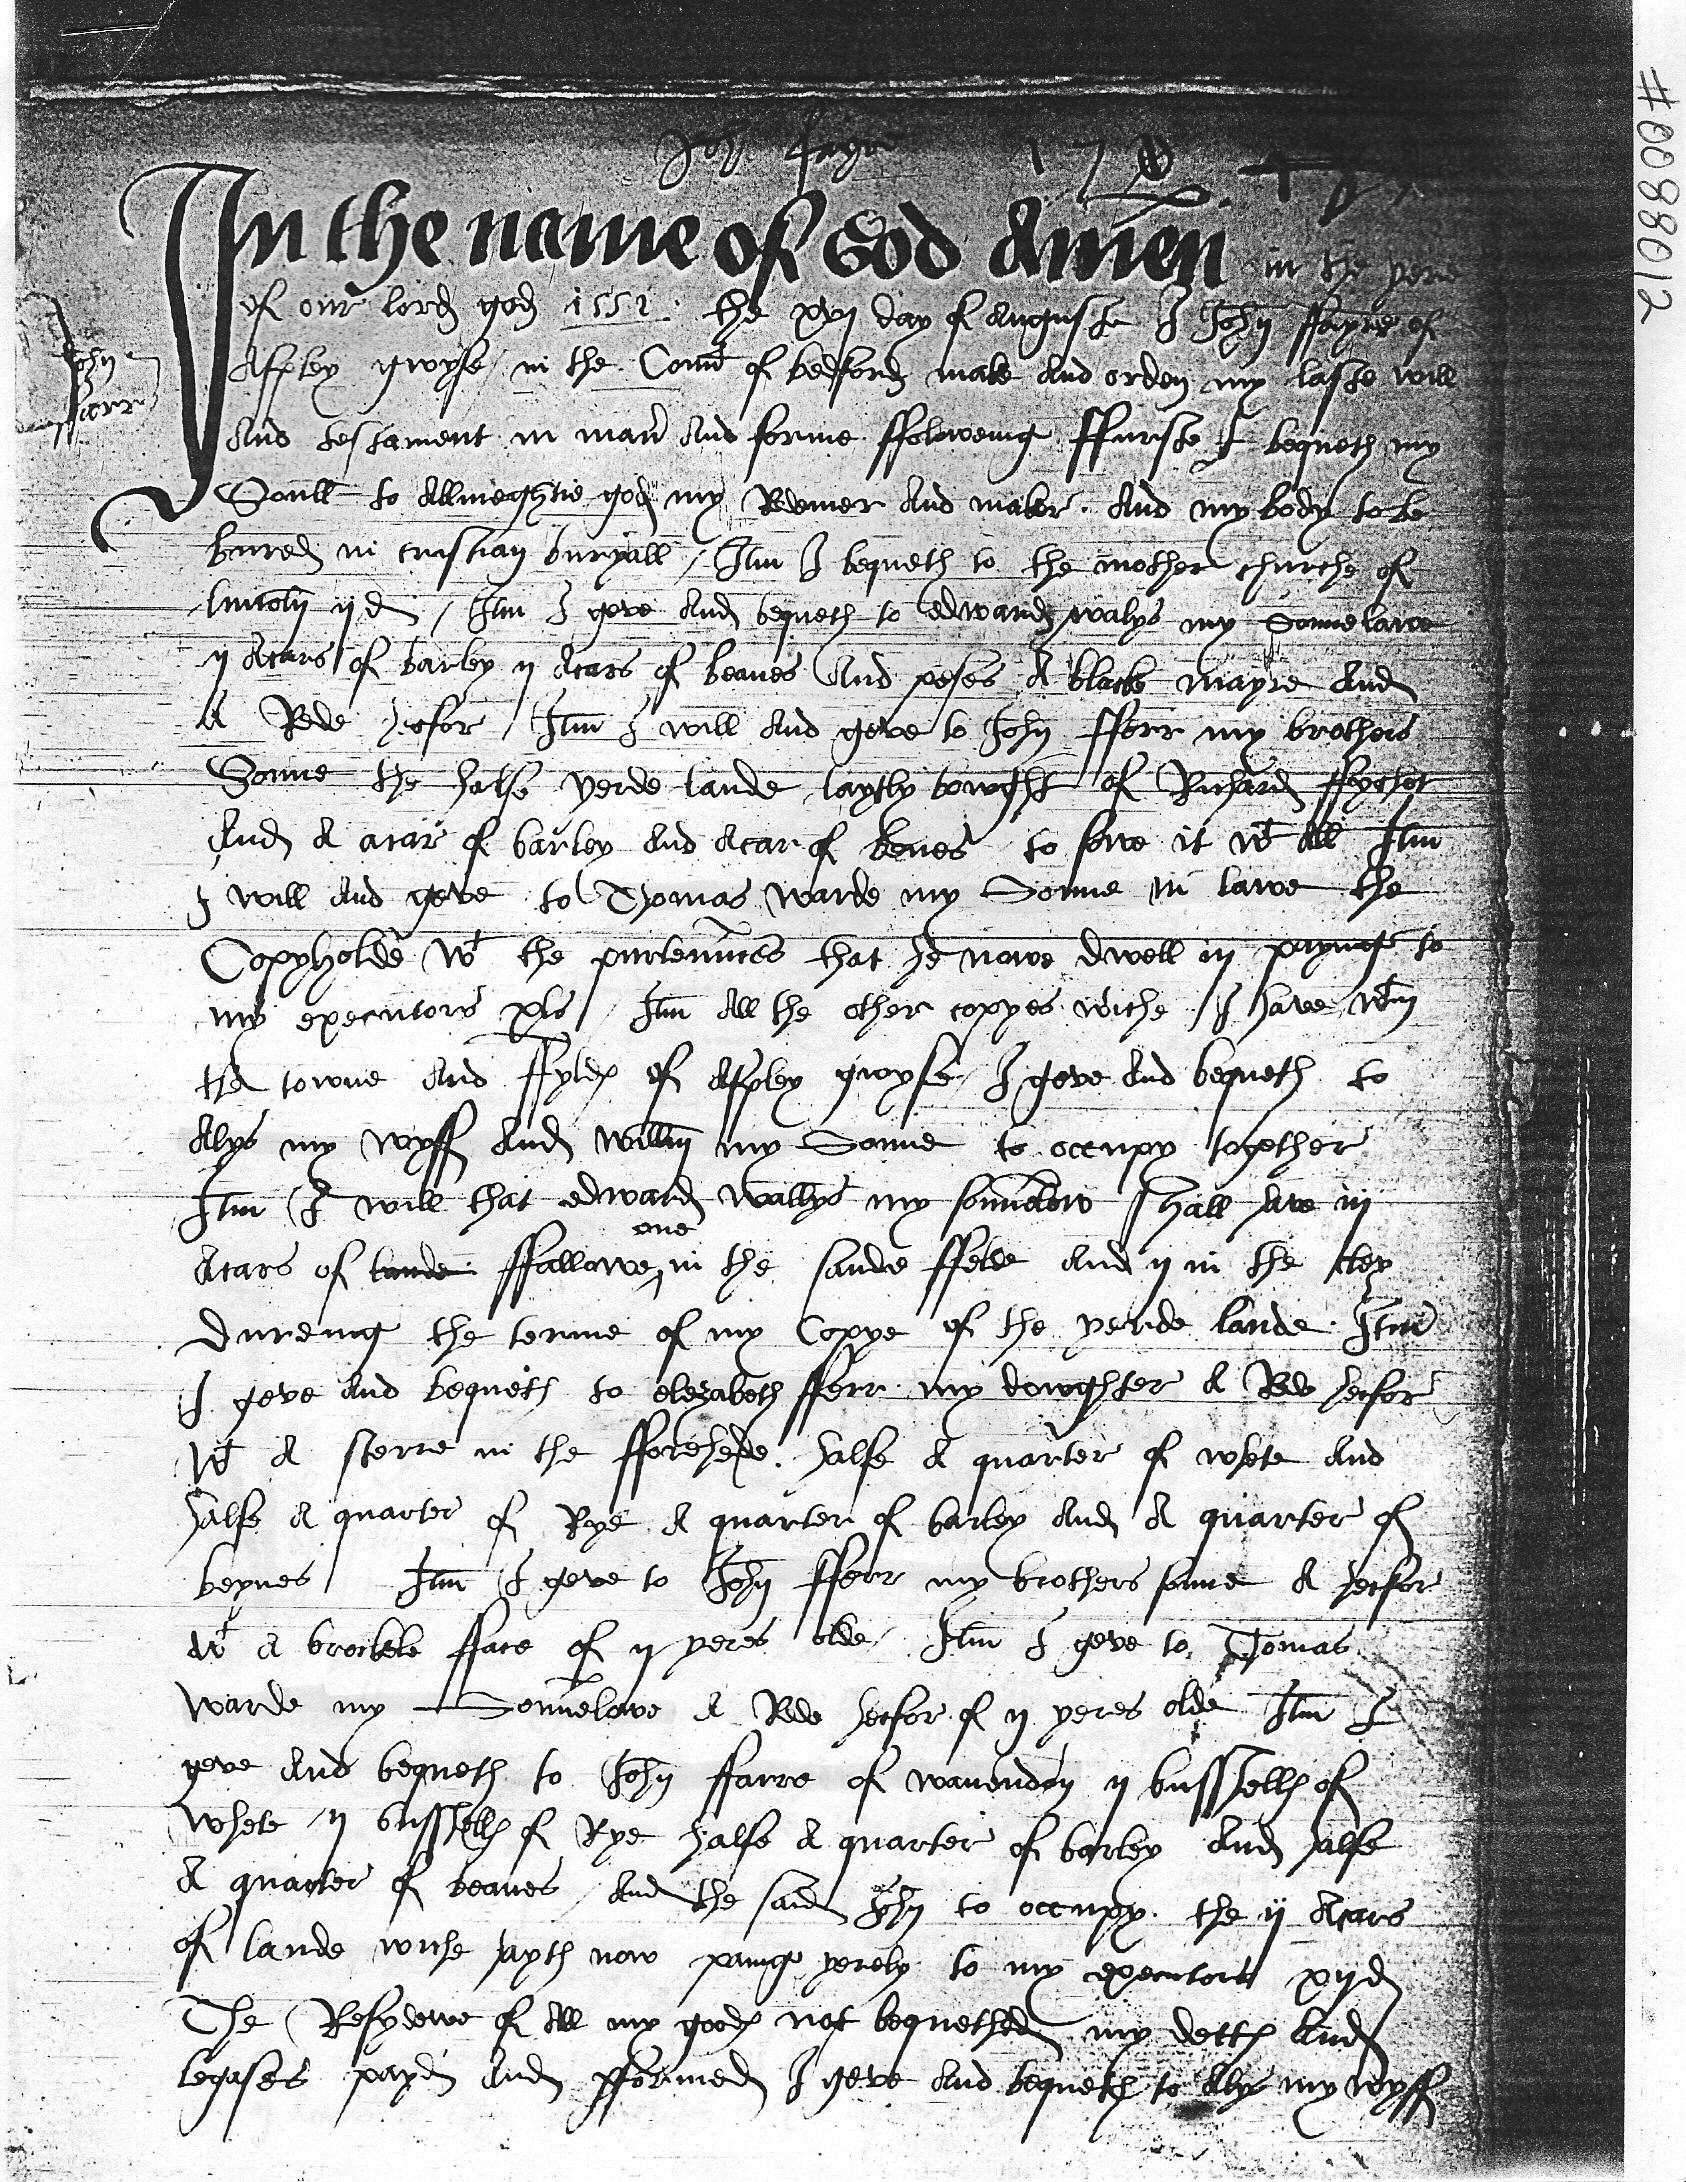 #0088012
In the name of God Amen in the yere
of our lord god 1551 the xvj day of Auguste I John ffayre of
John
ffarr
Aspley gwyse in the Count of bedford make And orden my laste will
And testament in man And forme ffoloweing ffurste I bequeth my
Soull to Allmeghtie god my Redemer And maker. And my body to be
bured in cristian buryall / Itm I bequeth to the mother churche of
lincoln ij d / Itm I geve And bequeth to edward walys my Sonnelawe
ij Acars of barley ij Acars of beanes And peses A blacke mayre And
A Rede hecfor / Itm I will And geve to John fferr my brothers
Sonne the halfe yerde lande laytly bowght of Richard
And A acar of barley And Acar of benes to sowe it wt All Itm
I will And geve to Thomas warde my Sonne in lawe the
Copyholde wt the purtennces that he nowe dwell in payinge to
my executors xls / Itm All the other coppes wiche I have wtin
the towne And ffyldes of Aspley gwyse I geve And bequeth to
Alys my wyff And willm my Sonne to occupy together
Itm I will that edward wallys my sonnelaw shall have iij
one
Acars of lande ffallowe ^ in the sande ffelde And ij in the cley
Dureing the terme of my Coppe of the yerde lande Itm
I geve And bequeth to elezabeth fferr my dowghter A Rede hecfor
wt A sterre in the fforehede. halfe A quarter of whete And
halfe A quarter of Rye A quarter of barley And A quarter of
beynes Itm I geve to John fferr my brothers sonne A hecfor
wt A brockle fface of ij yeres olde / Itm I geve to Thomas
warde my Sonnelawe A Rede hecfor of ij yeres olde Itm I
geve And bequeth to John ffarre of wavendon ij busshelles of
whete ij busshelles of Rye halfe A quarter of barley And halfe
A quarter of beanes And the said John to occupy. the ij Acars
of lande wiche hayth now paing yerely to my executors xijd
The Resydewe of All my goodes not bequethed my dettes And
legases payd And pformed I geve And bequeth to Alys my wyff